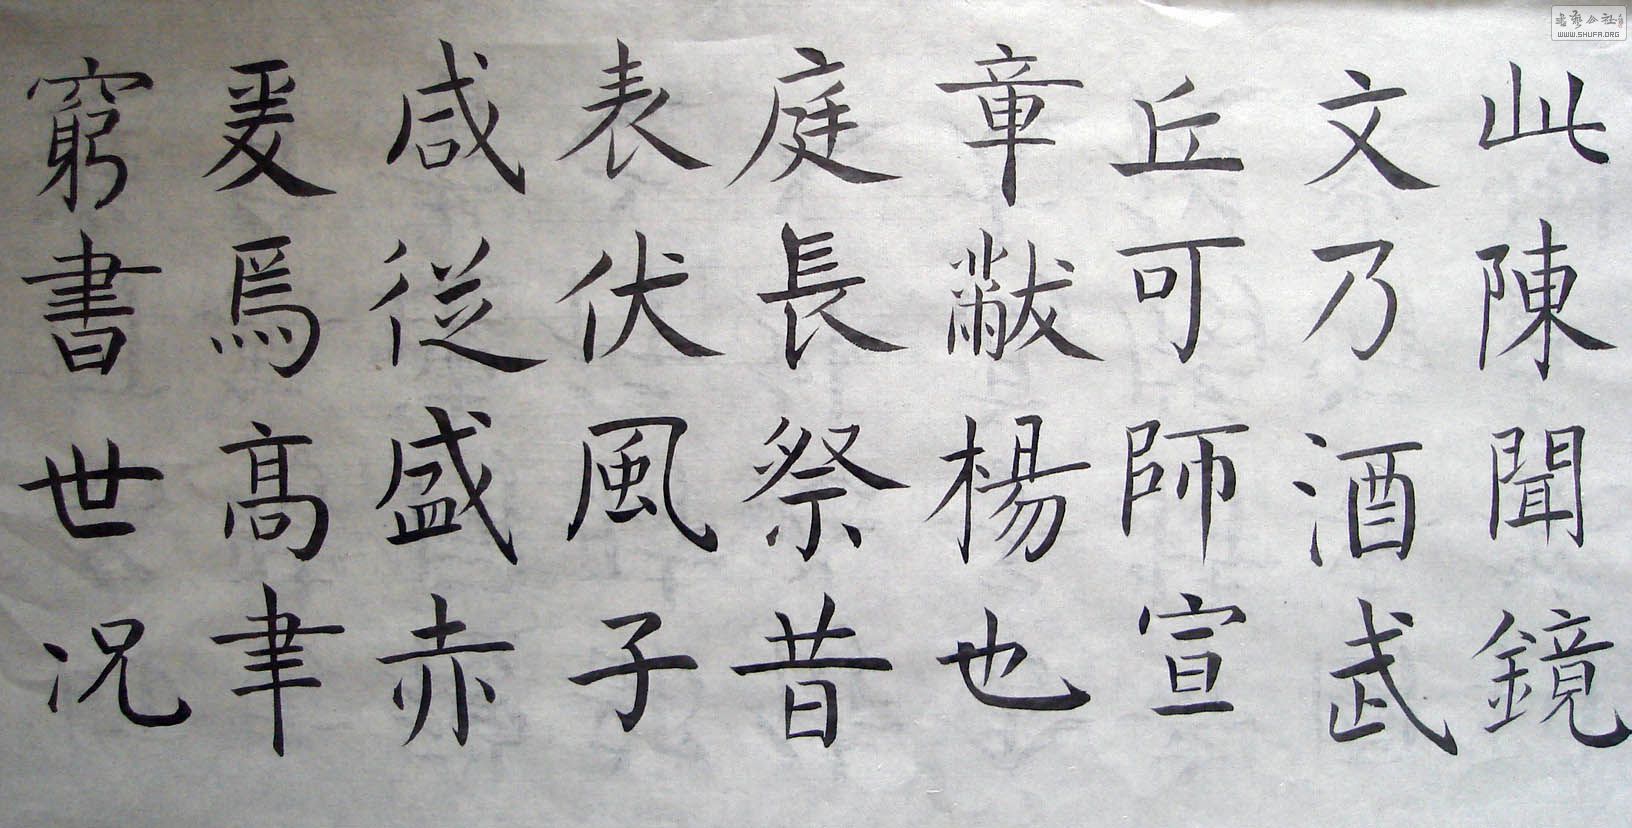 此陳聞鏡
文乃酒武
丘可師宣
章黻楊也
庭長祭昔
表伏風子
咸從盛赤
爰焉高聿
窮書世況
书艺公社
WWW.SHUFA.ORG